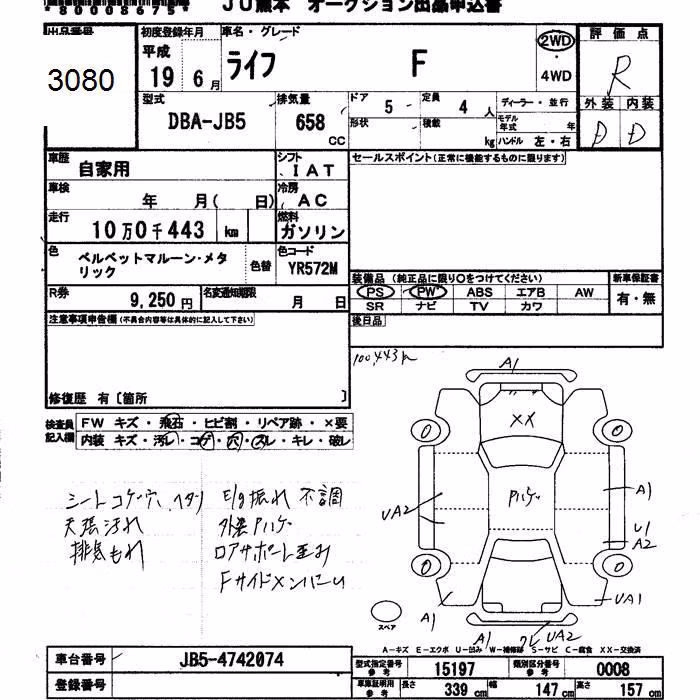 *8000867
ＪＵ熊本　オークション出品申込書
出品番号
3080
初度登録年月
平成
19 6月
車名・グレード
ライフ F
2WD
・
4WD
評価点
R
外装 内装
D D
型式
DBA-JB5
排気量
658
CC
ドア
5
定員
4人
形状
積載
kg
ディーラー・並行
モデル年式 年
ハンドル 左・右
車歴
自家用
シフト
IAT
セールスポイント(正常に機能するものに限ります)
車検
年 月( 日)
冷房
AC
走行
10万0千443 km
燃料
ガソリン
色
ベルベットマルーン・メタ
リック
色替
色コード
YR572M
装備品 (純正品に限り○をつけてください)
PS PW ABS エアB AW
SR ナビ TV カワ
新車保証書
有・無
R券
9,250円
名変通知期限
月 日
後日品
注意事項申告欄(不具合内容等は具体的に記入して下さい)
修復歴 有〔箇所 〕
100,443k
検査員
記入欄
FW キズ・飛石・ヒビ割・リペア跡・×要
内装 キズ・汚レ・コゲ・穴・スレ・キレ・破レ
シートコゲ穴、ヘタリ
天張汚れ
排気もれ
E/g振れ 不調
外装Pハゲ
ロアサポート歪み
A1
XX
Pハゲ
0
0
0
0
UA2
A1
U1
A2
A1
UA1
A1
UA2
スペア
A―キズ E―エクボ U―凹み W―補修跡 S―サビ C―腐食 XX―交換済
車台番号
JB5-4742074
型式指定番号
参考
15197
類別区分番号
参考
0008
登録番号
車庫証明用
参考
長さ
339 cm
幅
147 cm
高さ
157 cm